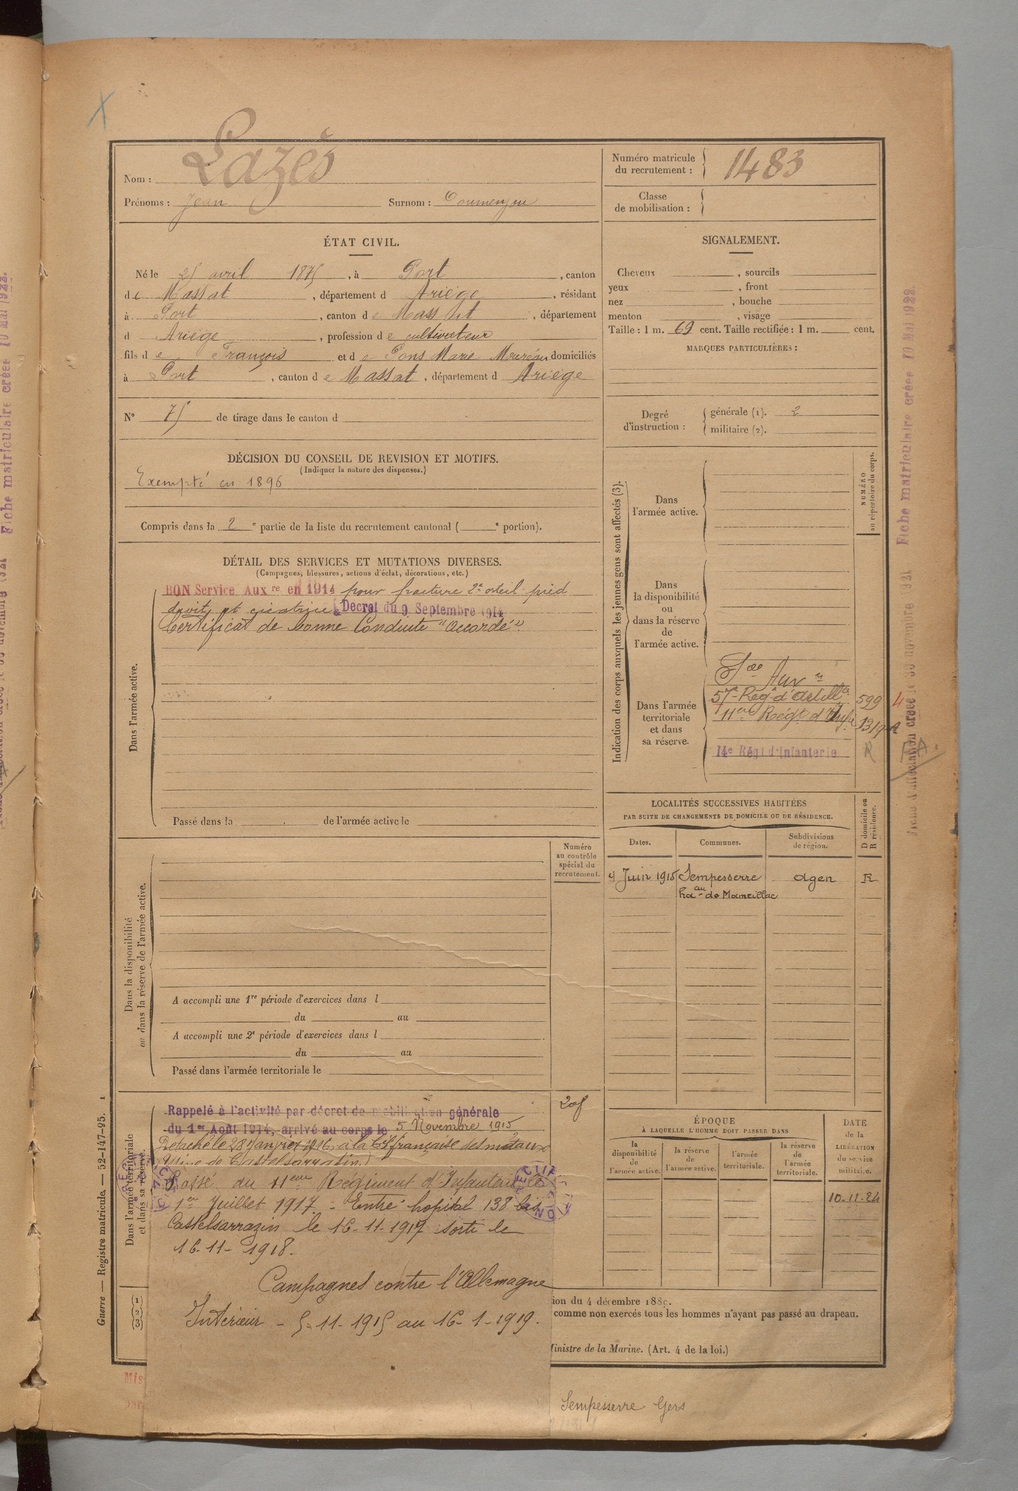 Nom : Lazès
Prénoms : Jean Surnom : Coumenjou
Numéro matricule du recrutement : 1483
Classe de mobilisation :
ÉTAT CIVIL.
Né le 25 avril 1875, à Port, canton
de Massat, département d Ariège, résidant
à Port, canton de Massat, département
d Ariège, profession de cultivateur
fils de François et de Pons Marie, domiciliés
à Port, canton de Massat, département d Ariège
N° 75 de tirage dans le canton d
SIGNALEMENT.
Cheveux , sourcils
yeux , front
nez , bouche
menton , visage
Taille : 1 m. 69 cent. Taille rectifiée : 1 m. cent.
MARQUES PARTICULIÈRES :
Degré d'instruction : générale (1). 2
militaire (2).
DÉCISION DU CONSEIL DE REVISION ET MOTIFS.
(Indiquer la nature des dispenses.)
Exempté en 1896
Compris dans la 2e partie de la liste du recrutement cantonal ( e portion).
DÉTAIL DES SERVICES ET MUTATIONS DIVERSES.
(Campagnes, blessures, actions d'éclat, décorations, etc.)
Dans l'armée active.
BON Service Aux re en 1914 pour fracture 2e orteil pied
droit et cicatrice Décret du 9 Septembre 1914
Certificat de bonne Conduite "accordé"
Passé dans la de l'armée active le
Indication des corps auxquels les jeunes gens sont affectés (3).
NUMÉRO au répertoire du corps.
Dans l'armée active.
Dans la disponibilité ou dans la réserve de l'armée active.
Dans l'armée territoriale et dans sa réserve.
Sce Auxre
57e Régt d'Artillie 599
11eme Régt d'Infie
14e Régt d'Infanterie R
LOCALITÉS SUCCESSIVES HABITÉES
PAR SUITE DE CHANGEMENTS DE DOMICILE OU DE RÉSIDENCE.
Dates. Communes. Subdivisions de région. D domicile ou R résidence.
4 Juin 1915 Sempesserre agen R
hau de Mameillac
Dans la disponibilité ou dans la réserve de l'armée active.
Numéro au contrôle spécial du recrutement.
A accompli une 1re période d'exercices dans l
du au
A accompli une 2e période d'exercices dans l
du au
Passé dans l'armée territoriale le
Dans l'armée territoriale et dans sa réserve
Rappelé à l'activité par décret de mobilisation générale
du 1er Août 1914, arrivé au corps le 5 Novembre 1915
Détaché le 28 Janvier 1916 à la Cie française des métaux
Usine de Castelsarrasin
Passé au 11eme Régiment d'Infanterie le
1er Juillet 1917 - Entré hopital 138 bis
Castelsarrazin le 16-11-1917 sorti le
16-11-1918.
Campagnes contre l'Allemagne
Intérieur - 5-11-1915 au 16-1-1919.
ÉPOQUE
À LAQUELLE L'HOMME DOIT PASSER DANS
la disponibilité de l'armée active. la réserve de l'armée active. l'armée territoriale. la réserve de l'armée territoriale.
DATE de la LIBÉRATION du service militaire.
10-11-24
ion du 4 décembre 1889.
comme non exercés tous les hommes n'ayant pas passé au drapeau.
Ministre de la Marine. (Art. 4 de la loi.)
Sempesserre Gers
Guerre — Registre matricule. — 52-147-95. 1
Fiche matriculaire créée 10 Mai 1922.